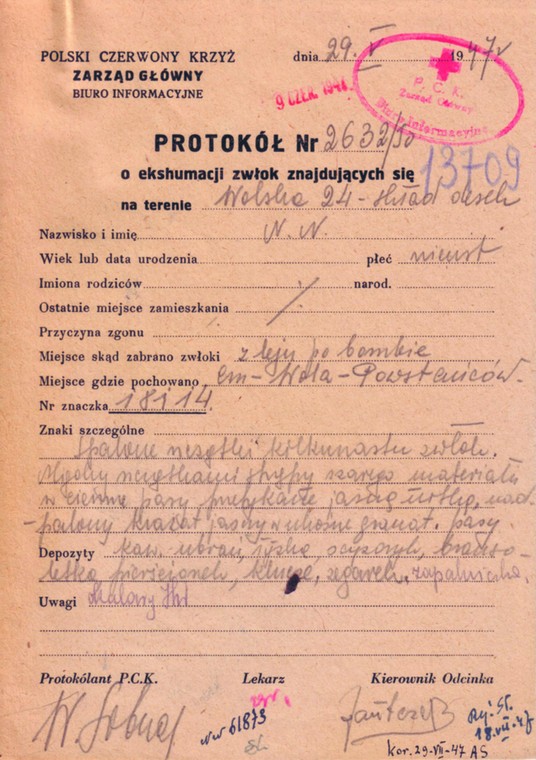 POLSKI CZERWONY KRZYŻ
ZARZĄD GŁÓWNY
BIURO INFORMACYJNE
dnia 29. V 1947 r
P. C. K.
Zarząd Główny
Biuro Informacyjne
9 CZER. 194
PROTOKÓŁ Nr 2632/50
13709
o ekshumacji zwłok znajdujących się
na terenie Wolska 24 - skład desek
Nazwisko i imię N. N.
Wiek lub data urodzenia płeć nieust
Imiona rodziców narod.
Ostatnie miejsce zamieszkania
Przyczyna zgonu
Miejsce skąd zabrano zwłoki z leju po bombie
Miejsce gdzie pochowano cm - Wola - Powstańców.
Nr znaczka 18114
Znaki szczególne
Spalone szczątki kilkunastu zwłok.
Między szczątkami strzępy szarego materiału
w ciemne pasy, przetykane jasną nitką, nad-
palony krawat jasny w ukośne granat. pasy
Depozyty kaw. ubrań, nożyczek, branso-
letka, pierścionek, klucze, zegarek, zapalniczka.
Uwagi
Protokólant P.C.K. Lekarz Kierownik Odcinka
nw 61873
18.VII-47
kor. 29-VII-47 AS